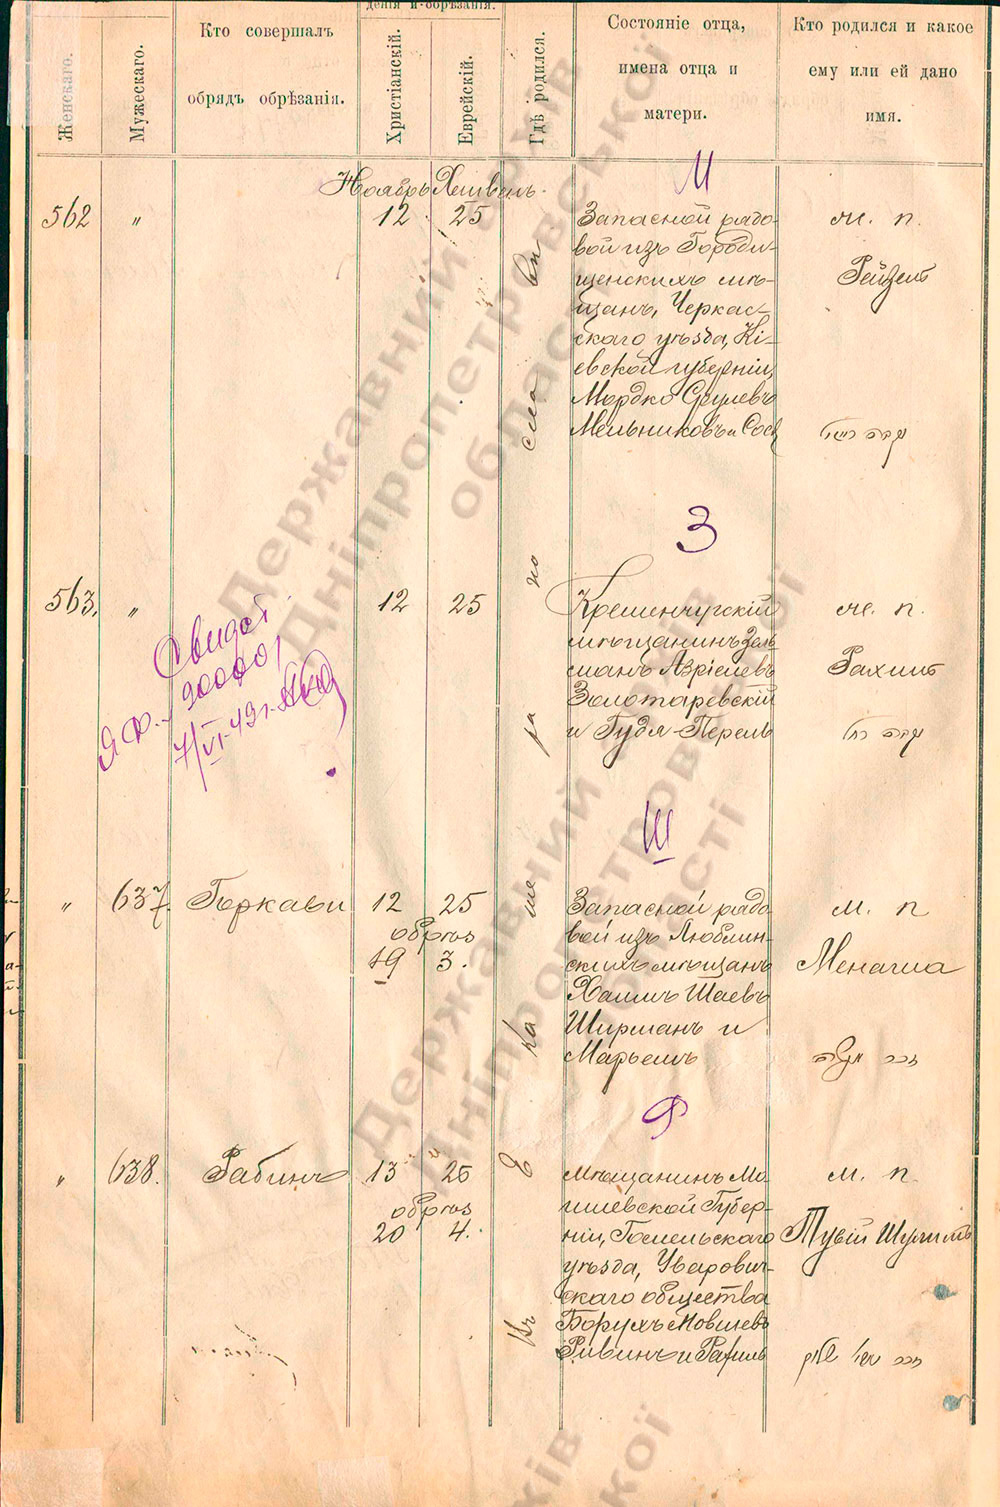 Женскаго.
Мужескаго.
Кто совершалъ
обрядъ обрѣзанія.
денія и обрѣзанія.
Христіанскій.
Еврейскій.
Гдѣ родился.
Состояніе отца,
имена отца и
матери.
Кто родился и какое
ему или ей дано
имя.
Ноябрь Хешвень.
М
562 " 12 25
Запасной рядо-
вой изъ Городи-
щенскихъ мѣ-
щанъ, Черкас-
скаго уѣзда, Кі-
евской губерніи,
Мордко СруLевъ
Мельниковъ и Сося
ж. п.
Рейзель
З
563. " 12 25
Кременчугскій
мѣщанинъ Зель-
манъ Азріелевъ
Золотаревскій
и Гудя-Перель
ж. п.
Рахиль
Свидет
Я №
90000
7/VI-49 г.
Ш
" 637. Горкави 12 25
обрѣз
19 3.
Запасной рядо-
вой изъ Люблин-
скихъ мѣщанъ
Хаимъ Шаевъ
Ширманъ и
Марьемъ
м. п
Менаша
זכר מנשה
Р
" 638. Рабинъ 13 25
обрѣз
20 4.
Мѣщанинъ Мо-
гилевской Губер-
ніи, Гомельскаго
уѣзда, Уварович-
скаго общества
Борухъ Мовшевъ
Ривинъ и Рахиль
м. п.
Тувій Шулимъ
Въ Е ка те ри но сла вѣ
Державний архів
Дніпропетровської
області
Державний архів
Дніпропетровської
області